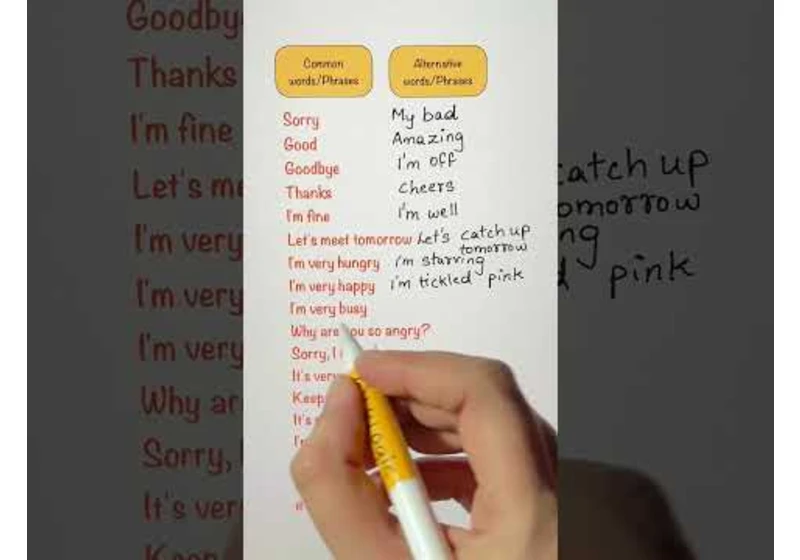 Goodby
Thanks
I'm fine
Let's me
I'm very
I'm very
I'm very
Why ar
Sorry,
It's ver
Keep
Common words/Phrases
Alternative words/Phrases
Sorry My bad
Good Amazing
Goodbye I'm off
Thanks cheers
I'm fine I'm well
Let's meet tomorrow Let's catch up
tomorrow
I'm very hungry i'm starving
I'm very happy i'm tickled pink
I'm very busy
Why are you so angry?
Sorry, I
It's very
Keep
It's
catch up
omorrow
ng
pink